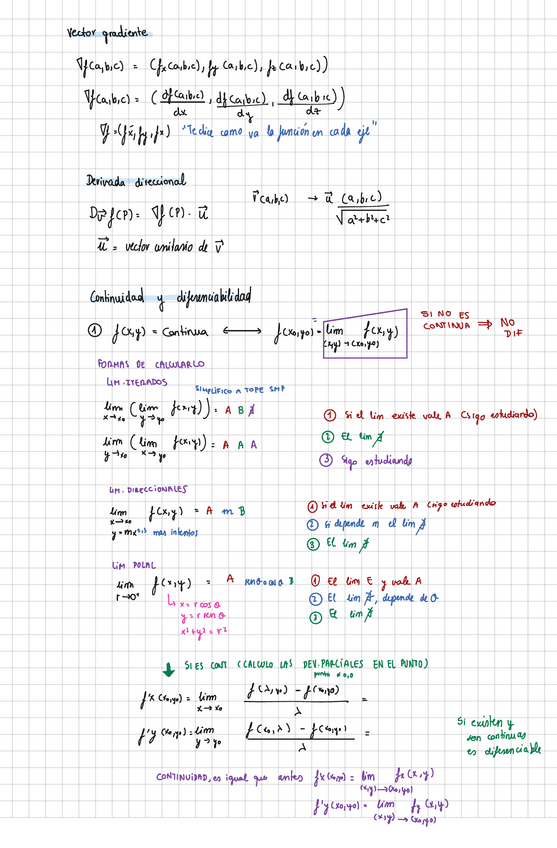 Vector gradiente
∇f(a,b,c) = (fx(a,b,c), fy(a,b,c), fz(a,b,c))
∇f(a,b,c) = (df(a,b,c)/dx, df(a,b,c)/dy, df(a,b,c)/dz)
∇f = (fx, fy, fz) "Te dice como va la función en cada eje"
Derivada direccional
Dv⃗ f(P) = ∇f(P) · u⃗
v⃗(a,b,c) → u⃗ (a,b,c)/√(a²+b²+c²)
u⃗ = vector unitario de v⃗
Continuidad y diferenciabilidad
① f(x,y) = Continua ⟷ f(x0,y0) = lim (x,y)→(x0,y0) f(x,y)
SI NO ES CONTINUA ⇒ NO DIF
FORMAS DE CALCULARLO
LIM. ITERADOS
SIMPLIFICO A TOPE SMP
lim x→x0 (lim y→y0 f(x,y)) = A B ∄
lim y→y0 (lim x→x0 f(x,y)) = A A A
① Si el lim existe vale A (sigo estudiando)
② El lim ∄
③ Sigo estudiando
LIM. DIRECCIONALES
lim x→x0 f(x,y) = A m B
y = mx mas intentos
① Si el lim existe vale A (sigo estudiando)
② Si depende m el lim ∄
③ El lim ∄
LIM POLAL
lim r→0⁺ f(x,y) = A senθ o cosθ B
x = r cos θ
y = r sen θ
x²+y² = r²
① El lim E y vale A
② El lim ∄, depende de θ
③ El lim ∄
↓ SI ES CONT (CALCULO LAS DEV. PARCIALES EN EL PUNTO)
punto ≠ 0,0
f'x(x0,y0) = lim x→x0 (f(λ,y0) − f(x0,y0))/λ =
f'y(x0,y0) = lim y→y0 (f(x0,λ) − f(x0,y0))/λ =
Si existen y
son continuas
es diferenciable
CONTINUIDAD, es igual que antes fx(x0,y0) = lim (x,y)→(x0,y0) fx(x,y)
f'y(x0,y0) = lim (x,y)→(x0,y0) fy(x,y)